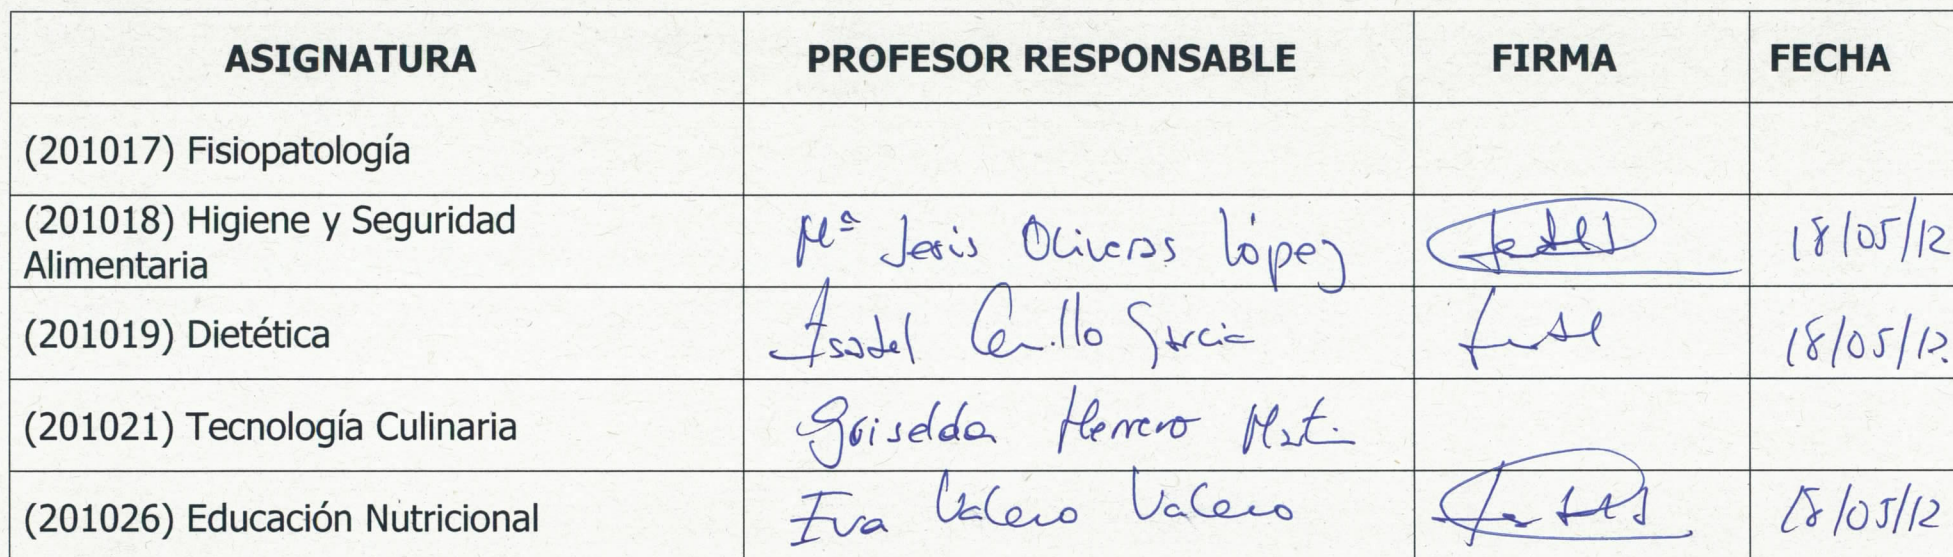 ASIGNATURA PROFESOR RESPONSABLE FIRMA FECHA
(201017) Fisiopatología
(201018) Higiene y Seguridad
Alimentaria
Mª Jesús Oliveras López 18/05/12
(201019) Dietética Isabel García 18/05/12
(201021) Tecnología Culinaria Griselda Herrero
(201026) Educación Nutricional Eva Valero Valero 18/05/12